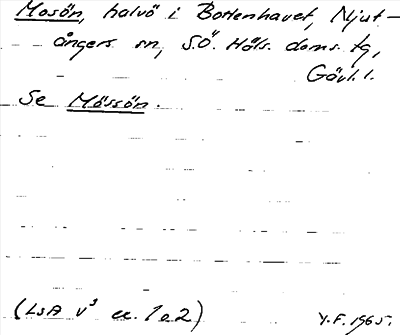 Mosön, halvö i Bottenhavet, Njut-
ångers sn, S.Ö. Häls. doms. tg,
Gävl. l.
Se Mössön.
(LSA V³ cc. 1 o 2)
Y.F. 1965.